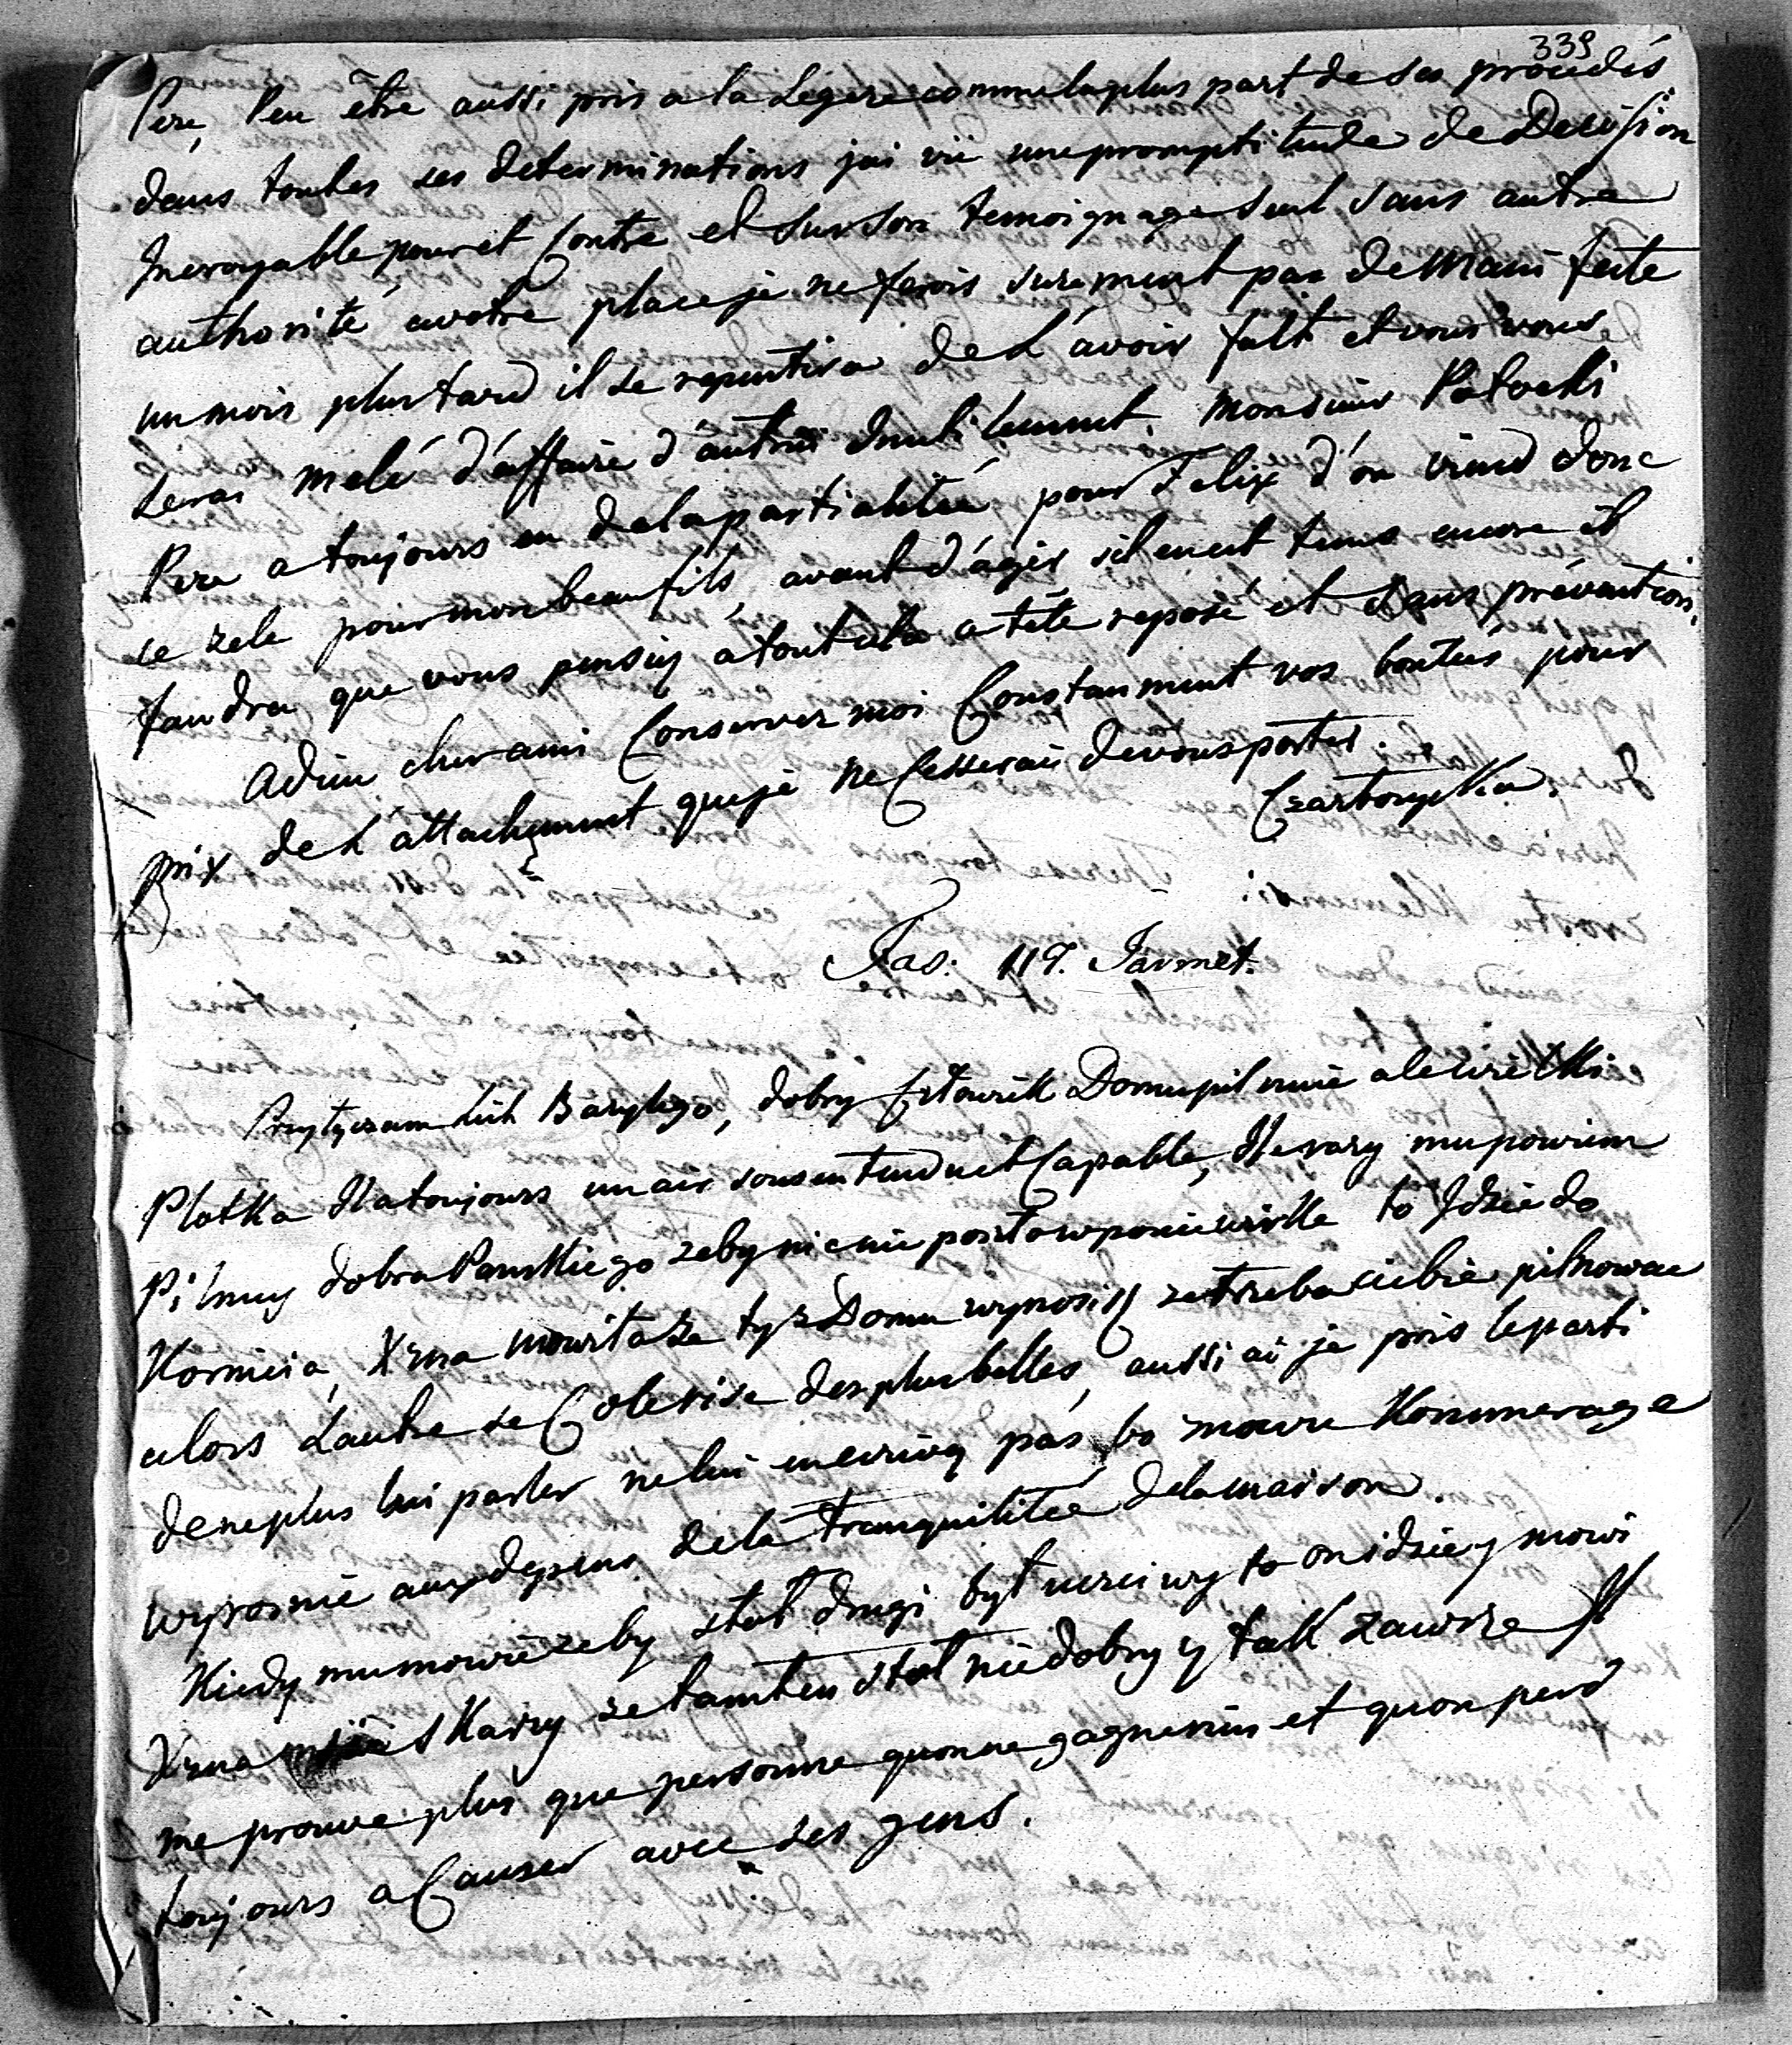 339
Pere, Peu être aussi pris a la Légere comme la plus part de ses procedés
dans toutes ses determinations jai vü une promptitude de Decision
Incroyable pour et Contre et sur son temoignage seul sans autre
authorité a votre place je ne ferois surement pas de Manifeste
un mois plus tard il se repentira de L'avoir fait et vous vous
serai melé d'affaire d'autrui Inutilement. Monsieur Potocki
Pere a toujours eu de la partialitée pour Felix d'ou viend donc
ce zele pour mon beau fils avant d'agir sil en est tems encore il
faudra que vous pensiez a tout cela a tête reposé et sans prévention.
Adieu cher ami Conservez moi Constanment vos bontés pour
prix de L'attachement que je ne Cesserai de vous porter.
Czartoryska.
Fas: 119. Jarmet.
Przytyczam list Bazylego, dobry Człowiek Domu pilnuie ale wielki
Plotka Il a toujours un air sousentendu et Capable, Ile razy mu powiem
Pilnuy dobra Panskiego zeby nic nie poszło w poniewirke to Idzie do
Kornicia, Xzna mowiła ze ty z Domu wynosisz ze trzeba ciebie pilnowac
alors L'autre se Colerise des plus belles, aussi ai je pris le parti
de ne plus lui parler ne lui ecrivez pas bo znowu Kommerage
wyrosnie aux depens de la tranquilitée de la maison.
Kiedy mu mowie zeby stol drugi był ucziwy to on idzie y mowi
Xzna skarzy ze tamten stol nie dobry y tak zawsze Il
me prouve plus que personne quon ne gagne rien et quon perd
toujours a Causer avec ses gens.